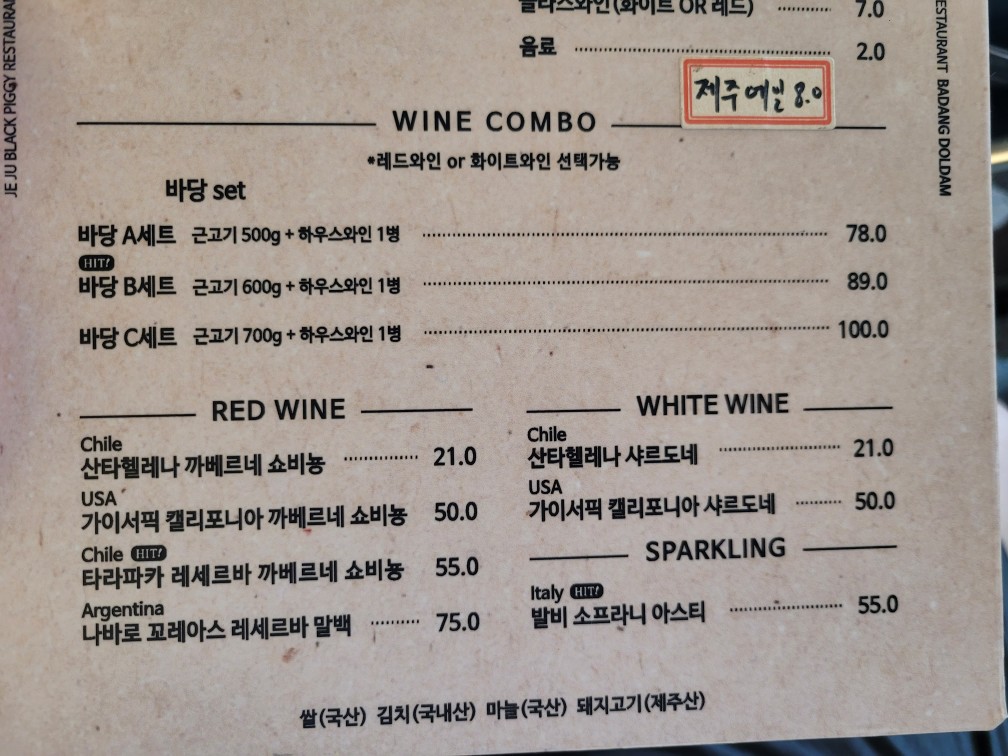 글라스와인(화이트 OR 레드) 7.0
음료 2.0
제주에일 8.0
WINE COMBO
*레드와인 or 화이트와인 선택가능
바당 set
바당 A세트 근고기 500g + 하우스와인 1병 78.0
HIT!
바당 B세트 근고기 600g + 하우스와인 1병 89.0
바당 C세트 근고기 700g + 하우스와인 1병 100.0
RED WINE
Chile
산타헬레나 까베르네 쇼비뇽 21.0
USA
가이서픽 캘리포니아 까베르네 쇼비뇽 50.0
Chile HIT!
타라파카 레세르바 까베르네 쇼비뇽 55.0
Argentina
나바로 꼬레아스 레세르바 말백 75.0
WHITE WINE
Chile
산타헬레나 샤르도네 21.0
USA
가이서픽 캘리포니아 샤르도네 50.0
SPARKLING
Italy HIT!
발비 소프라니 아스티 55.0
쌀(국산) 김치(국내산) 마늘(국산) 돼지고기(제주산)
JEJU BLACK PIGGY RESTAURA
ESTAURANT BADANG DOLDAM